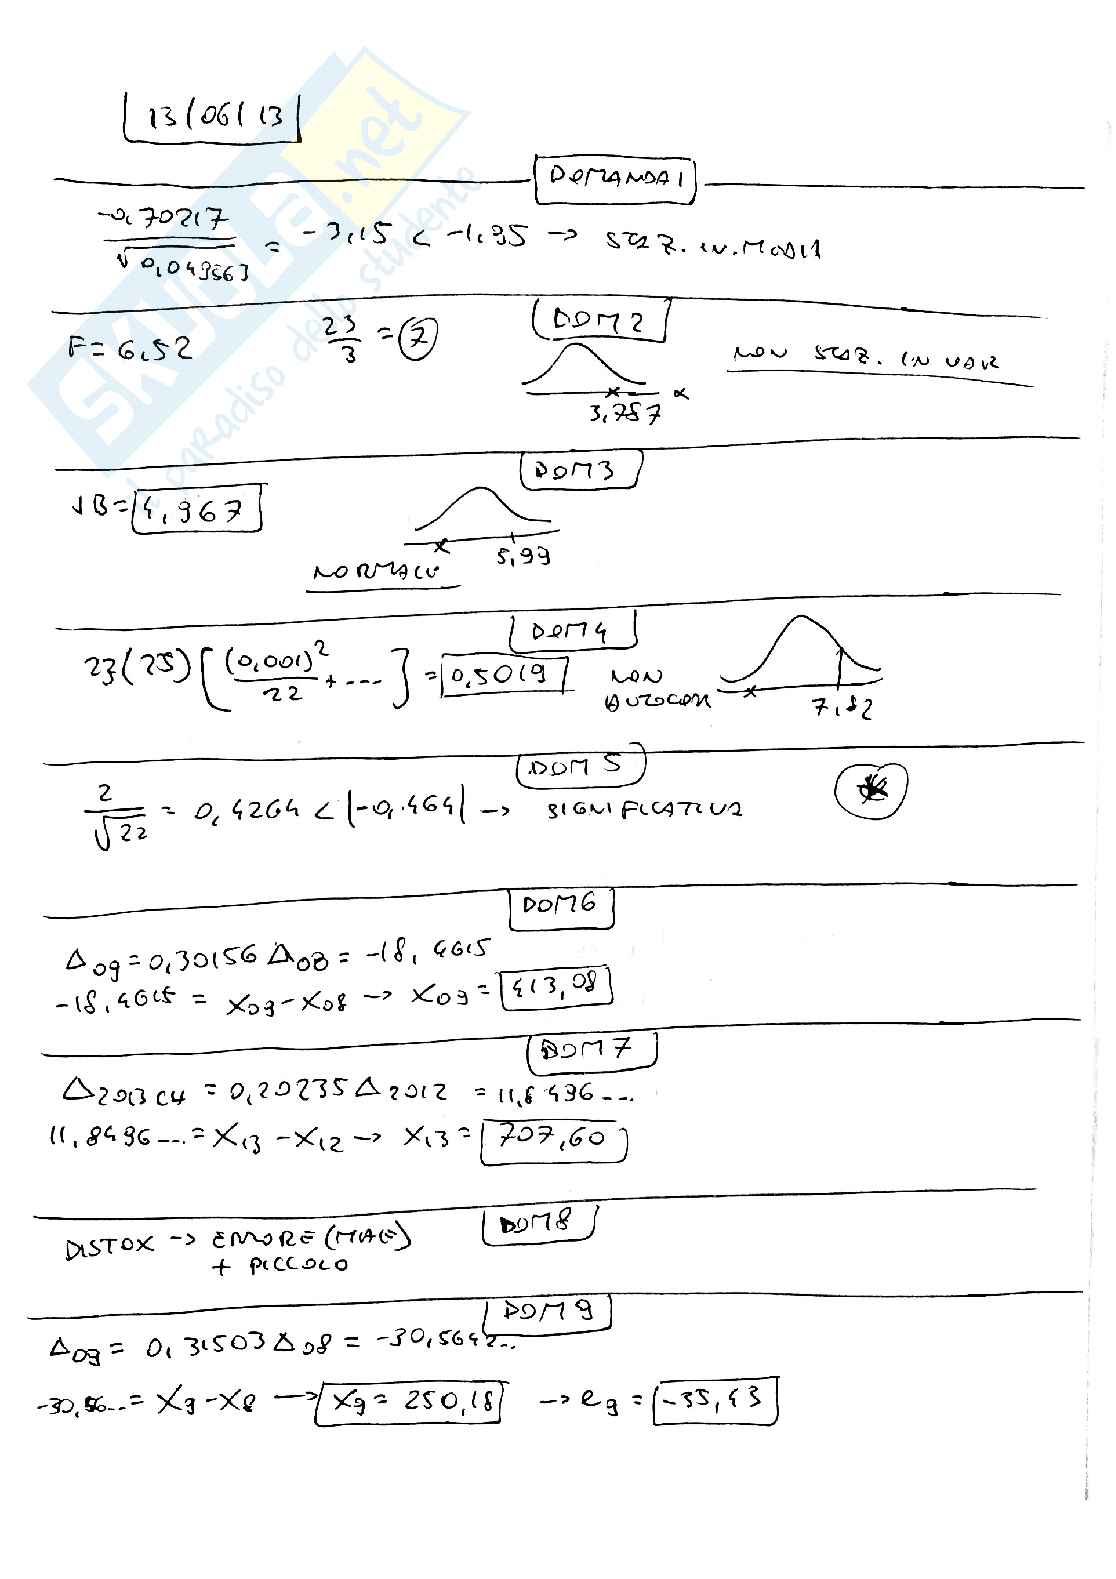 13/06/13
DOMANDA 1
-0,70217 / √0,049563 = -3,15 < -1,95 → STAZ. IN. MEDIA
DOM 2
F = 6,52 23/3 = 7 NON STAZ. IN VAR
3,787 α
DOM 3
JB = 4,967
5,99
NORMALI
DOM 4
23(25)[(0,001)²/22 + ---] = 0,5019 NON
AUTOCORR
7,82
DOM 5
2/√22 = 0,4264 < |-0,464| → SIGNIFICATIVA
DOM 6
Δ09 = 0,30156 Δ08 = -18,4615
-18,4615 = X09 - X08 → X09 = 413,08
DOM 7
Δ2013 C4 = 0,20235 Δ2012 = 11,8496...
11,8496... = X13 - X12 → X13 = 707,60
DOM 8
DISTOX → ERRORE (MAE)
+ PICCOLO
DOM 9
Δ09 = 0,31503 Δ08 = -30,5642..
-30,56... = X9 - X8 → X9 = 250,18 → e9 = -35,43
SKUOLA.net
il paradiso dello studente